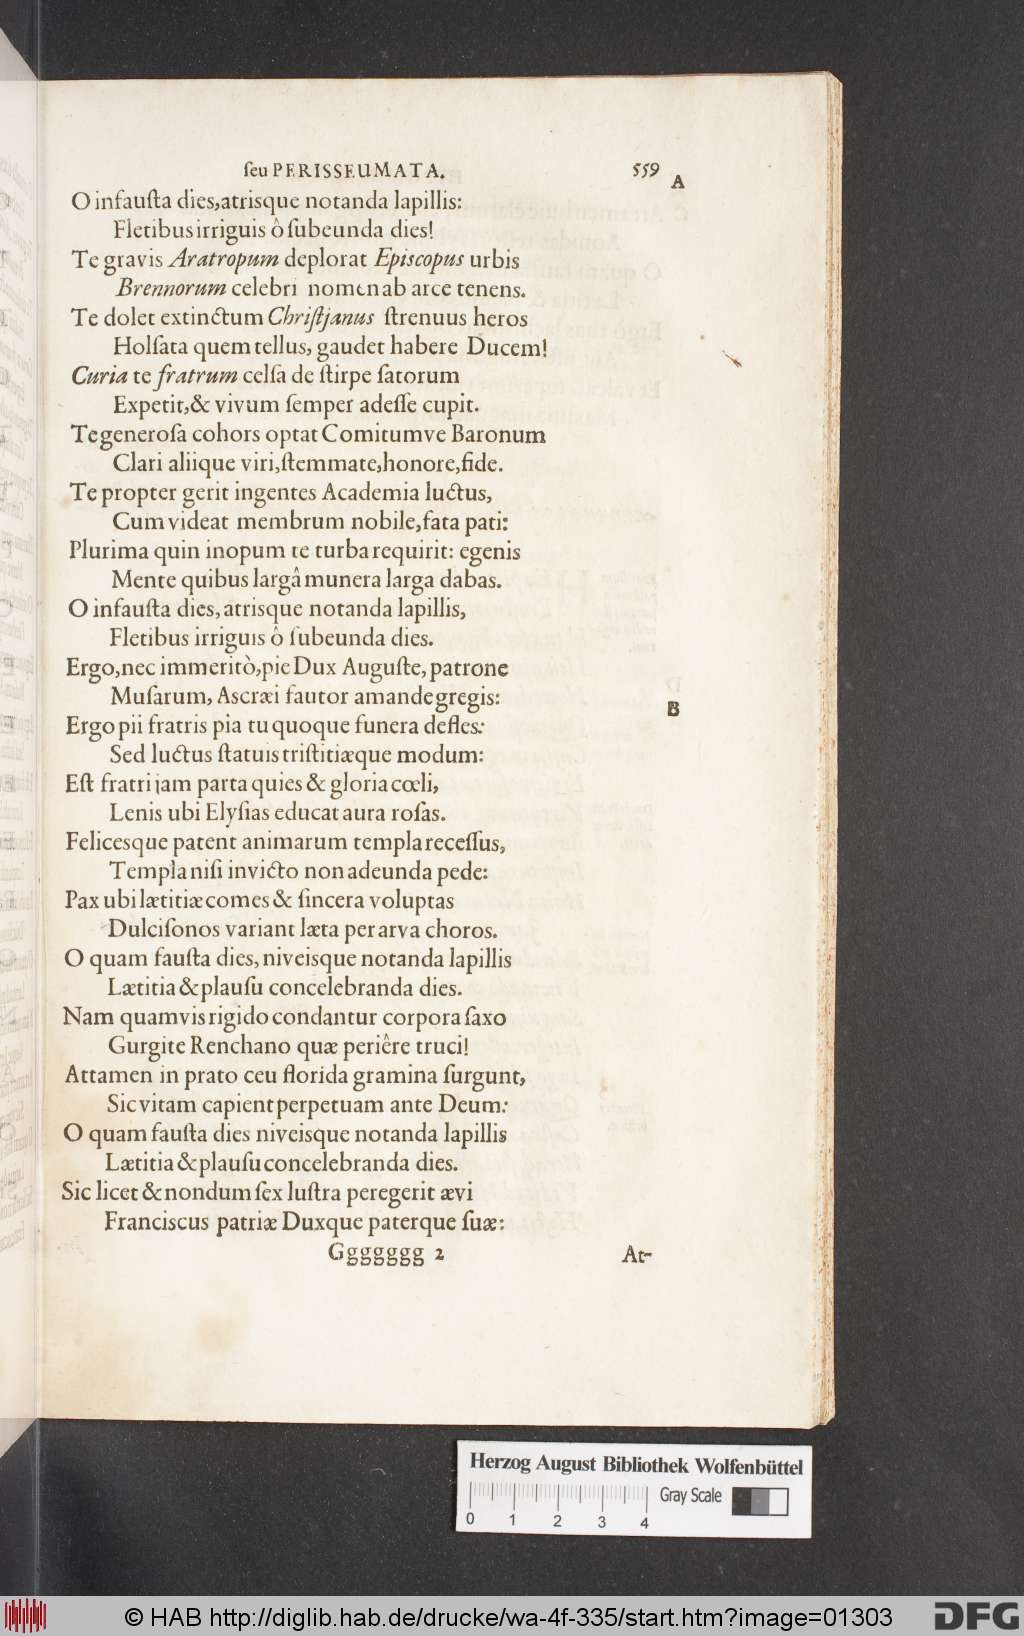 ſeu PERISSEUMATA. 559
A
O infauſta dies,atrisque notanda lapillis:
Fletibus irriguis ô ſubeunda dies!
Te gravis Aratropum deplorat Epiſcopus urbis
Brennorum celebri nomen ab arce tenens.
Te dolet extinctum Chriſtjanus ſtrenuus heros
Holſata quem tellus, gaudet habere Ducem!
Curia te fratrum celſa de ſtirpe ſatorum
Expetit,& vivum ſemper adeſſe cupit.
Te generoſa cohors optat Comitumve Baronum
Clari aliique viri,ſtemmate,honore,fide.
Te propter gerit ingentes Academia luctus,
Cum videat membrum nobile,fata pati:
Plurima quin inopum te turba requirit: egenis
Mente quibus largâ munera larga dabas.
O infauſta dies, atrisque notanda lapillis,
Fletibus irriguis ô ſubeunda dies.
Ergo,nec immeritò,pie Dux Auguſte, patrone
Muſarum, Aſcræi fautor amande gregis:
B
Ergo pii fratris pia tu quoque funera defles:
Sed luctus ſtatuis triſtitiæque modum:
Eſt fratri jam parta quies & gloria cœli,
Lenis ubi Elyſias educat aura roſas.
Felicesque patent animarum templa receſſus,
Templa niſi invicto non adeunda pede:
Pax ubi lætitiæ comes & ſincera voluptas
Dulciſonos variant læta per arva choros.
O quam fauſta dies, niveisque notanda lapillis
Lætitia & plauſu concelebranda dies.
Nam quamvis rigido condantur corpora ſaxo
Gurgite Renchano quæ periêre truci!
Attamen in prato ceu florida gramina ſurgunt,
Sic vitam capient perpetuam ante Deum:
O quam fauſta dies niveisque notanda lapillis
Lætitia & plauſu concelebranda dies.
Sic licet & nondum ſex luſtra peregerit ævi
Franciscus patriæ Duxque paterque ſuæ:
Ggggggg 2 At-
Herzog August Bibliothek Wolfenbüttel
Gray Scale
0 1 2 3 4
© HAB http://diglib.hab.de/drucke/wa-4f-335/start.htm?image=01303
DFG